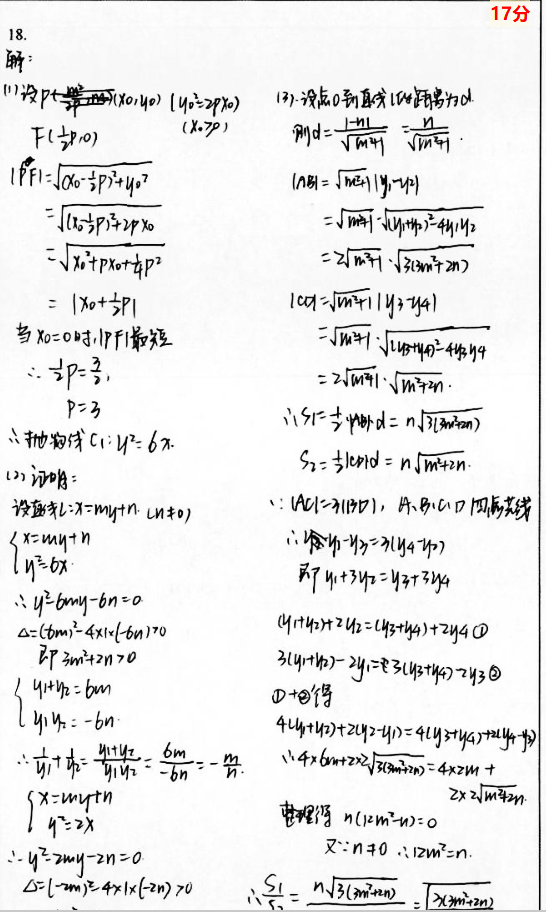 17分
18.
解:
(1) 设P(x₀,y₀) (y₀²=2px₀)
(x₀≥0)
F(½p,0)
|PF|=√((x₀-½p)²+y₀²)
=√((x₀-½p)²+2px₀)
=√(x₀²+px₀+¼p²)
= |x₀+½p|
当x₀=0时,|PF|最短
∴ ½p=3/2,
p=3
∴抛物线C₁:y²=6x.
(2) 证明:
设直线l:x=my+n. (n≠0)
{x=my+n
y²=6x.
∴y²-6my-6n=0.
Δ=(-6m)²-4×1×(-6n)>0
即 3m²+2n>0
{y₁+y₂=6m
y₁y₂=-6n.
∴ 1/y₁+1/y₂=(y₁+y₂)/(y₁y₂)=6m/(-6n)=-m/n.
{x=my+n
y²=2x
∴y²-2my-2n=0.
Δ=(-2m)²-4×1×(-2n)>0
(3). 设点O到直线l的距离为d.
则d=|-n|/√(m²+1) =n/√(m²+1).
|AB|=√(m²+1)|y₁-y₂|
=√(m²+1)·√((y₁+y₂)²-4y₁y₂)
=2√(m²+1)·√(3(3m²+2n))
|CD|=√(m²+1)|y₃-y₄|
=√(m²+1)·√((y₃+y₄)²-4y₃y₄)
=2√(m²+1)·√(m²+2n).
∴S₁=½|AB|·d=n√(3(3m²+2n))
S₂=½|CD|d=n√(m²+2n).
∵|AC|=3|BD|, A、B、C、D四点共线
∴y₁-y₃=3(y₄-y₂)
即 y₁+3y₂=y₃+3y₄
(y₁+y₂)+2y₂=(y₃+y₄)+2y₄①
3(y₁+y₂)-2y₁=3(y₃+y₄)-2y₃②
①+②得
4(y₁+y₂)+2(y₂-y₁)=4(y₃+y₄)+2(y₄-y₃)
∴4×6m+2×2√(3(3m²+2n))=4×2m+
2×2√(m²+2n).
整理得 n(12m²-n)=0
又∵n≠0 ∴12m²=n.